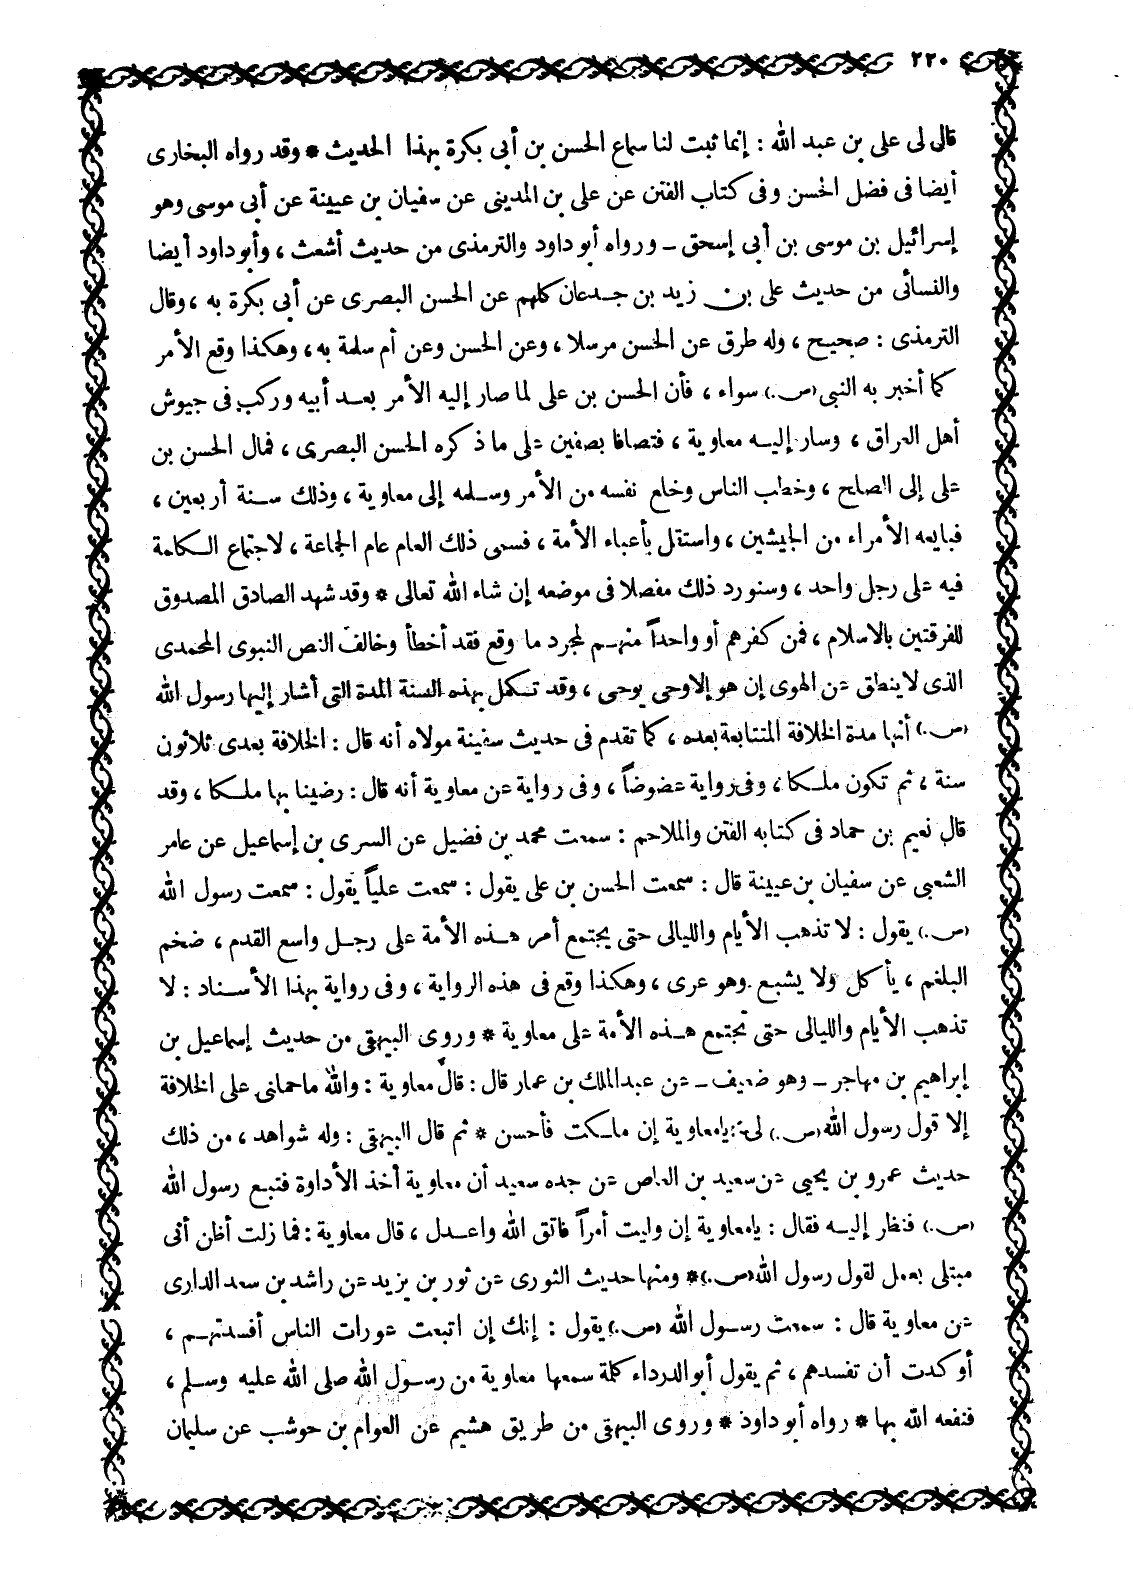 ٢٢٠
قال لى على بن عبد الله : إنما ثبت لنا سماع الحسن بن أبى بكرة بهذا الحديث * وقد رواه البخارى
أيضا فى فضل الحسن وفى كتاب الفتن عن على بن المدينى عن سفيان بن عيينة عن أبى موسى وهو
إسرائيل بن موسى بن أبى إسحق ـ ورواه أبو داود والترمذى من حديث أشعث ، وأبو داود أيضا
والنسائى من حديث على بن زيد بن جدعان كلهم عن الحسن البصرى عن أبى بكرة به ، وقال
الترمذى : صحيح ، وله طرق عن الحسن مرسلا ، وعن الحسن وعن أم سلمة به ، وهكذا وقع الأمر
كما أخبر به النبى (ص.) سواء ، فأن الحسن بن على لما صار إليه الأمر بعد أبيه وركب فى جيوش
أهل العراق ، وسار إليه معاوية ، فتصافا بصفين على ما ذكره الحسن البصرى ، فمال الحسن بن
على إلى الصلح ، وخطب الناس وخلع نفسه من الأمر وسلمه إلى معاوية ، وذلك سنة أربعين ،
فبايعه الأمراء من الجيشين ، واستقل بأعباء الأمة ، فسمى ذلك العام عام الجماعة ، لاجتماع الكلمة
فيه على رجل واحد ، وسنورد ذلك مفصلا فى موضعه إن شاء الله تعالى * وقد شهد الصادق المصدوق
للفرقتين بالاسلام ، فمن كفرهم أو واحداً منهم لمجرد ما وقع فقد أخطأ وخالف النص النبوى المحمدى
الذى لا ينطق عن الهوى إن هو إلا وحى يوحى ، وقد تكمل بهذه السنة المدة التى أشار إليها رسول الله
(ص.) أنها مدة الخلافة المتتابعة بعده ، كما تقدم فى حديث سفينة مولاه أنه قال : الخلافة بعدى ثلاثون
سنة ، ثم تكون ملكا ، وفى رواية عضوضاً ، وفى رواية عن معاوية أنه قال : رضينا بها ملكا ، وقد
قال نعيم بن حماد فى كتابه الفتن والملاحم : سمعت محمد بن فضيل عن السرى بن إسماعيل عن عامر
الشعبى عن سفيان بن عيينة قال : سمعت الحسن بن على يقول : سمعت علياً يقول : سمعت رسول الله
(ص.) يقول : لا تذهب الأيام والليالى حتى يجتمع أمر هذه الأمة على رجل واسع القدم ، ضخم
البلغم ، يأكل ولا يشبع وهو عرى ، وهكذا وقع فى هذه الرواية ، وفى رواية بهذا الأسناد : لا
تذهب الأيام والليالى حتى تجتمع هذه الأمة على معاوية * وروى البيهقى من حديث إسماعيل بن
إبراهيم بن مهاجر ـ وهو ضعيف ـ عن عبد الملك بن عمار قال : قال معاوية : والله ما حملنى على الخلافة
إلا قول رسول الله (ص.) لى : يا معاوية إن ملكت فأحسن * ثم قال البيهقى : وله شواهد ، من ذلك
حديث عمرو بن يحيى عن سعيد بن العاص عن جده سعيد أن معاوية أخذ الأداوة فتبع رسول الله
(ص.) فنظر إليه فقال : يا معاوية إن وليت أمراً فاتق الله واعدل ، قال معاوية : فما زلت أظن أنى
مبتلى بعمل لقول رسول الله (ص.) * ومنها حديث الثورى عن ثور بن يزيد عن راشد بن سعد الدارى
عن معاوية قال : سمعت رسول الله (ص.) يقول : إنك إن اتبعت عورات الناس أفسدتهم ،
أو كدت أن تفسدهم ، ثم يقول أبو الدرداء كلمة سمعها معاوية من رسول الله صلى الله عليه وسلم ،
فنفعه الله بها * رواه أبو داود * وروى البيهقى من طريق هشيم عن العوام بن حوشب عن سليمان